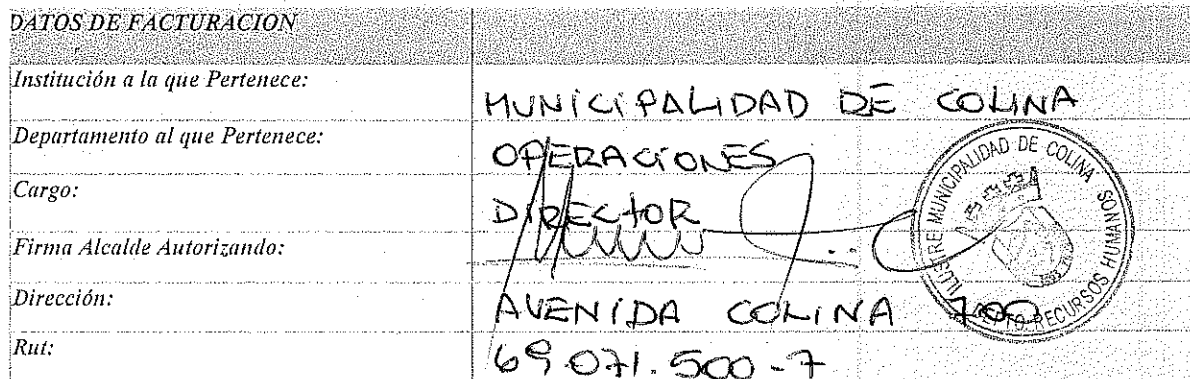 DATOS DE FACTURACION
Institución a la que Pertenece: MUNICIPALIDAD DE COLINA
Departamento al que Pertenece: OPERACIONES
Cargo: DIRECTOR
Firma Alcalde Autorizando:
Dirección: AVENIDA COLINA 700
Rut: 69.071.500-7
ILUSTRE MUNICIPALIDAD DE COLINA
DEPTO RECURSOS HUMANOS